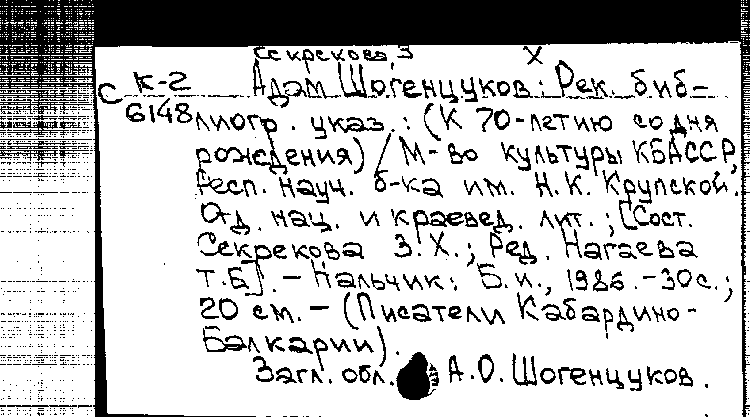 Секрекова, З Х
С К-2 Адам Шогенцуков: Рек. биб-
6148 лиогр. указ.: (К 70-летию со дня
рождения) / М-во культуры КБАССР,
Респ. науч. б-ка им. Н.К. Крупской.
Отд. нац. и краевед. лит.; [Сост.
Секрекова З.Х.; Ред. Нагаева
Т.Б]. – Нальчик: Б.и., 1986. – 30с.;
20 см. – (Писатели Кабардино-
Балкарии).
Загл. обл. А.О. Шогенцуков.